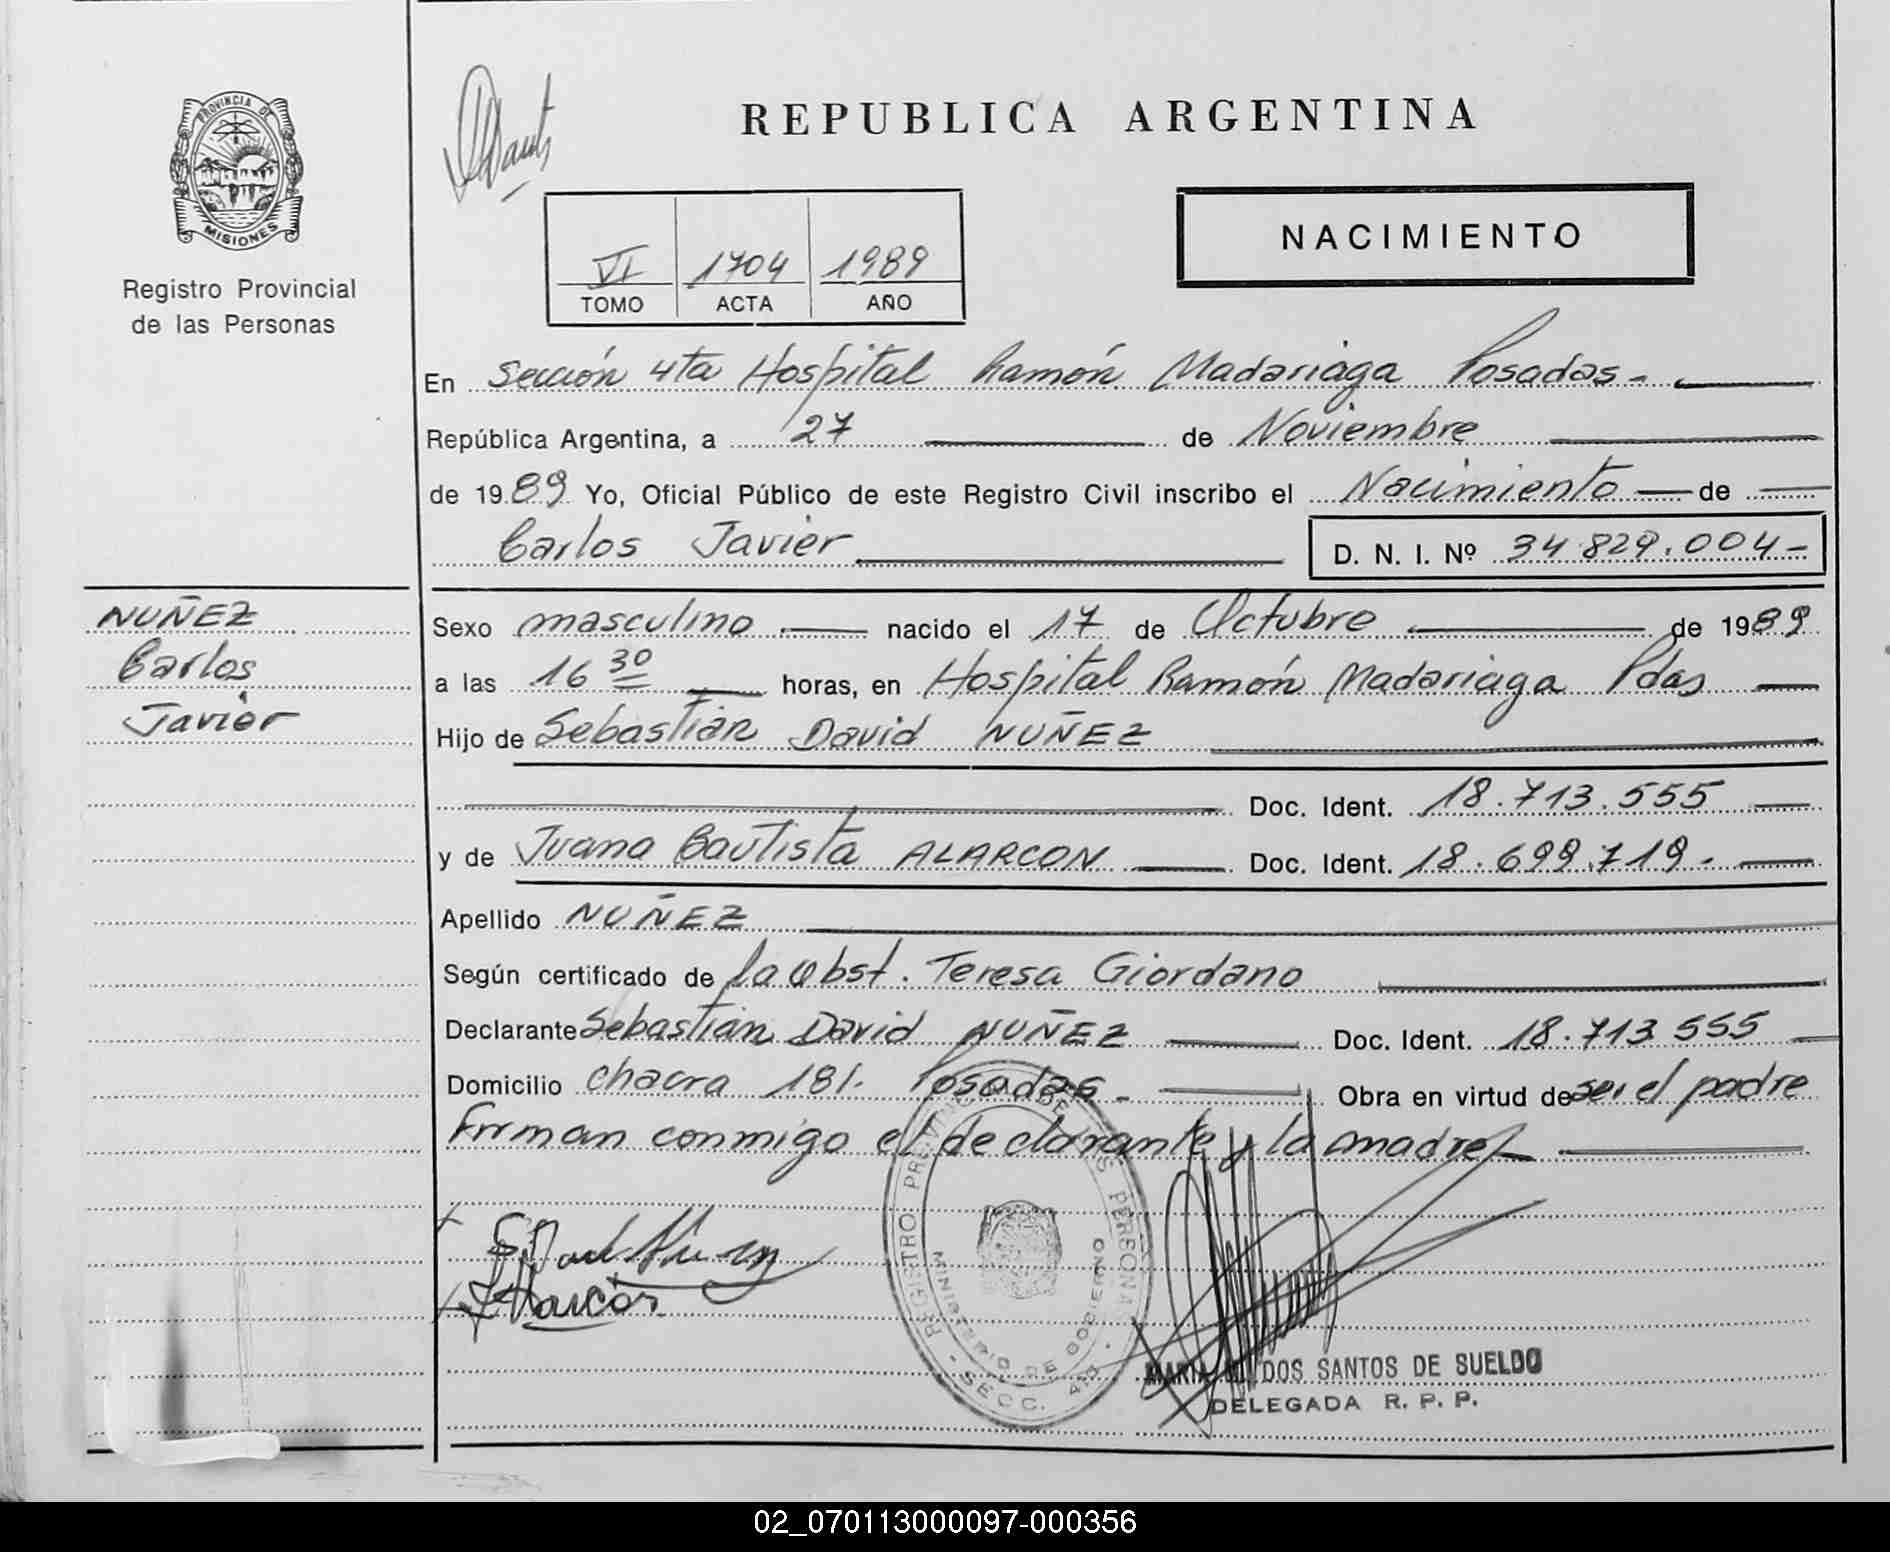 PROVINCIA DE
MISIONES
Registro Provincial
de las Personas
REPUBLICA ARGENTINA
NACIMIENTO
VI 1704 1989
TOMO ACTA AÑO
En Sección 4ta Hospital Ramón Madariaga Posadas.-
República Argentina, a 27 de Noviembre
de 1989 Yo, Oficial Público de este Registro Civil inscribo el Nacimiento de
Carlos Javier D. N. I. Nº 34.829.004-
NUÑEZ
Carlos
Javier
Sexo masculino nacido el 17 de Octubre de 1989
a las 16 30 horas, en Hospital Ramón Madariaga Pdas
Hijo de Sebastián David NUÑEZ
Doc. Ident. 18.713.555
y de Juana Bautista ALARCON Doc. Ident. 18.699.719.
Apellido NUÑEZ
Según certificado de la obst. Teresa Giordano
Declarante Sebastián David NUÑEZ Doc. Ident. 18.713.555
Domicilio chacra 181. Posadas.- Obra en virtud de ser el padre
Firman conmigo el declarante y la madre
REGISTRO PROVINCIAL DE LAS PERSONAS
MINISTERIO DE GOBIERNO
SECC. 4ta
MARIA DOS SANTOS DE SUELDO
DELEGADA R. P. P.
02_070113000097-000356